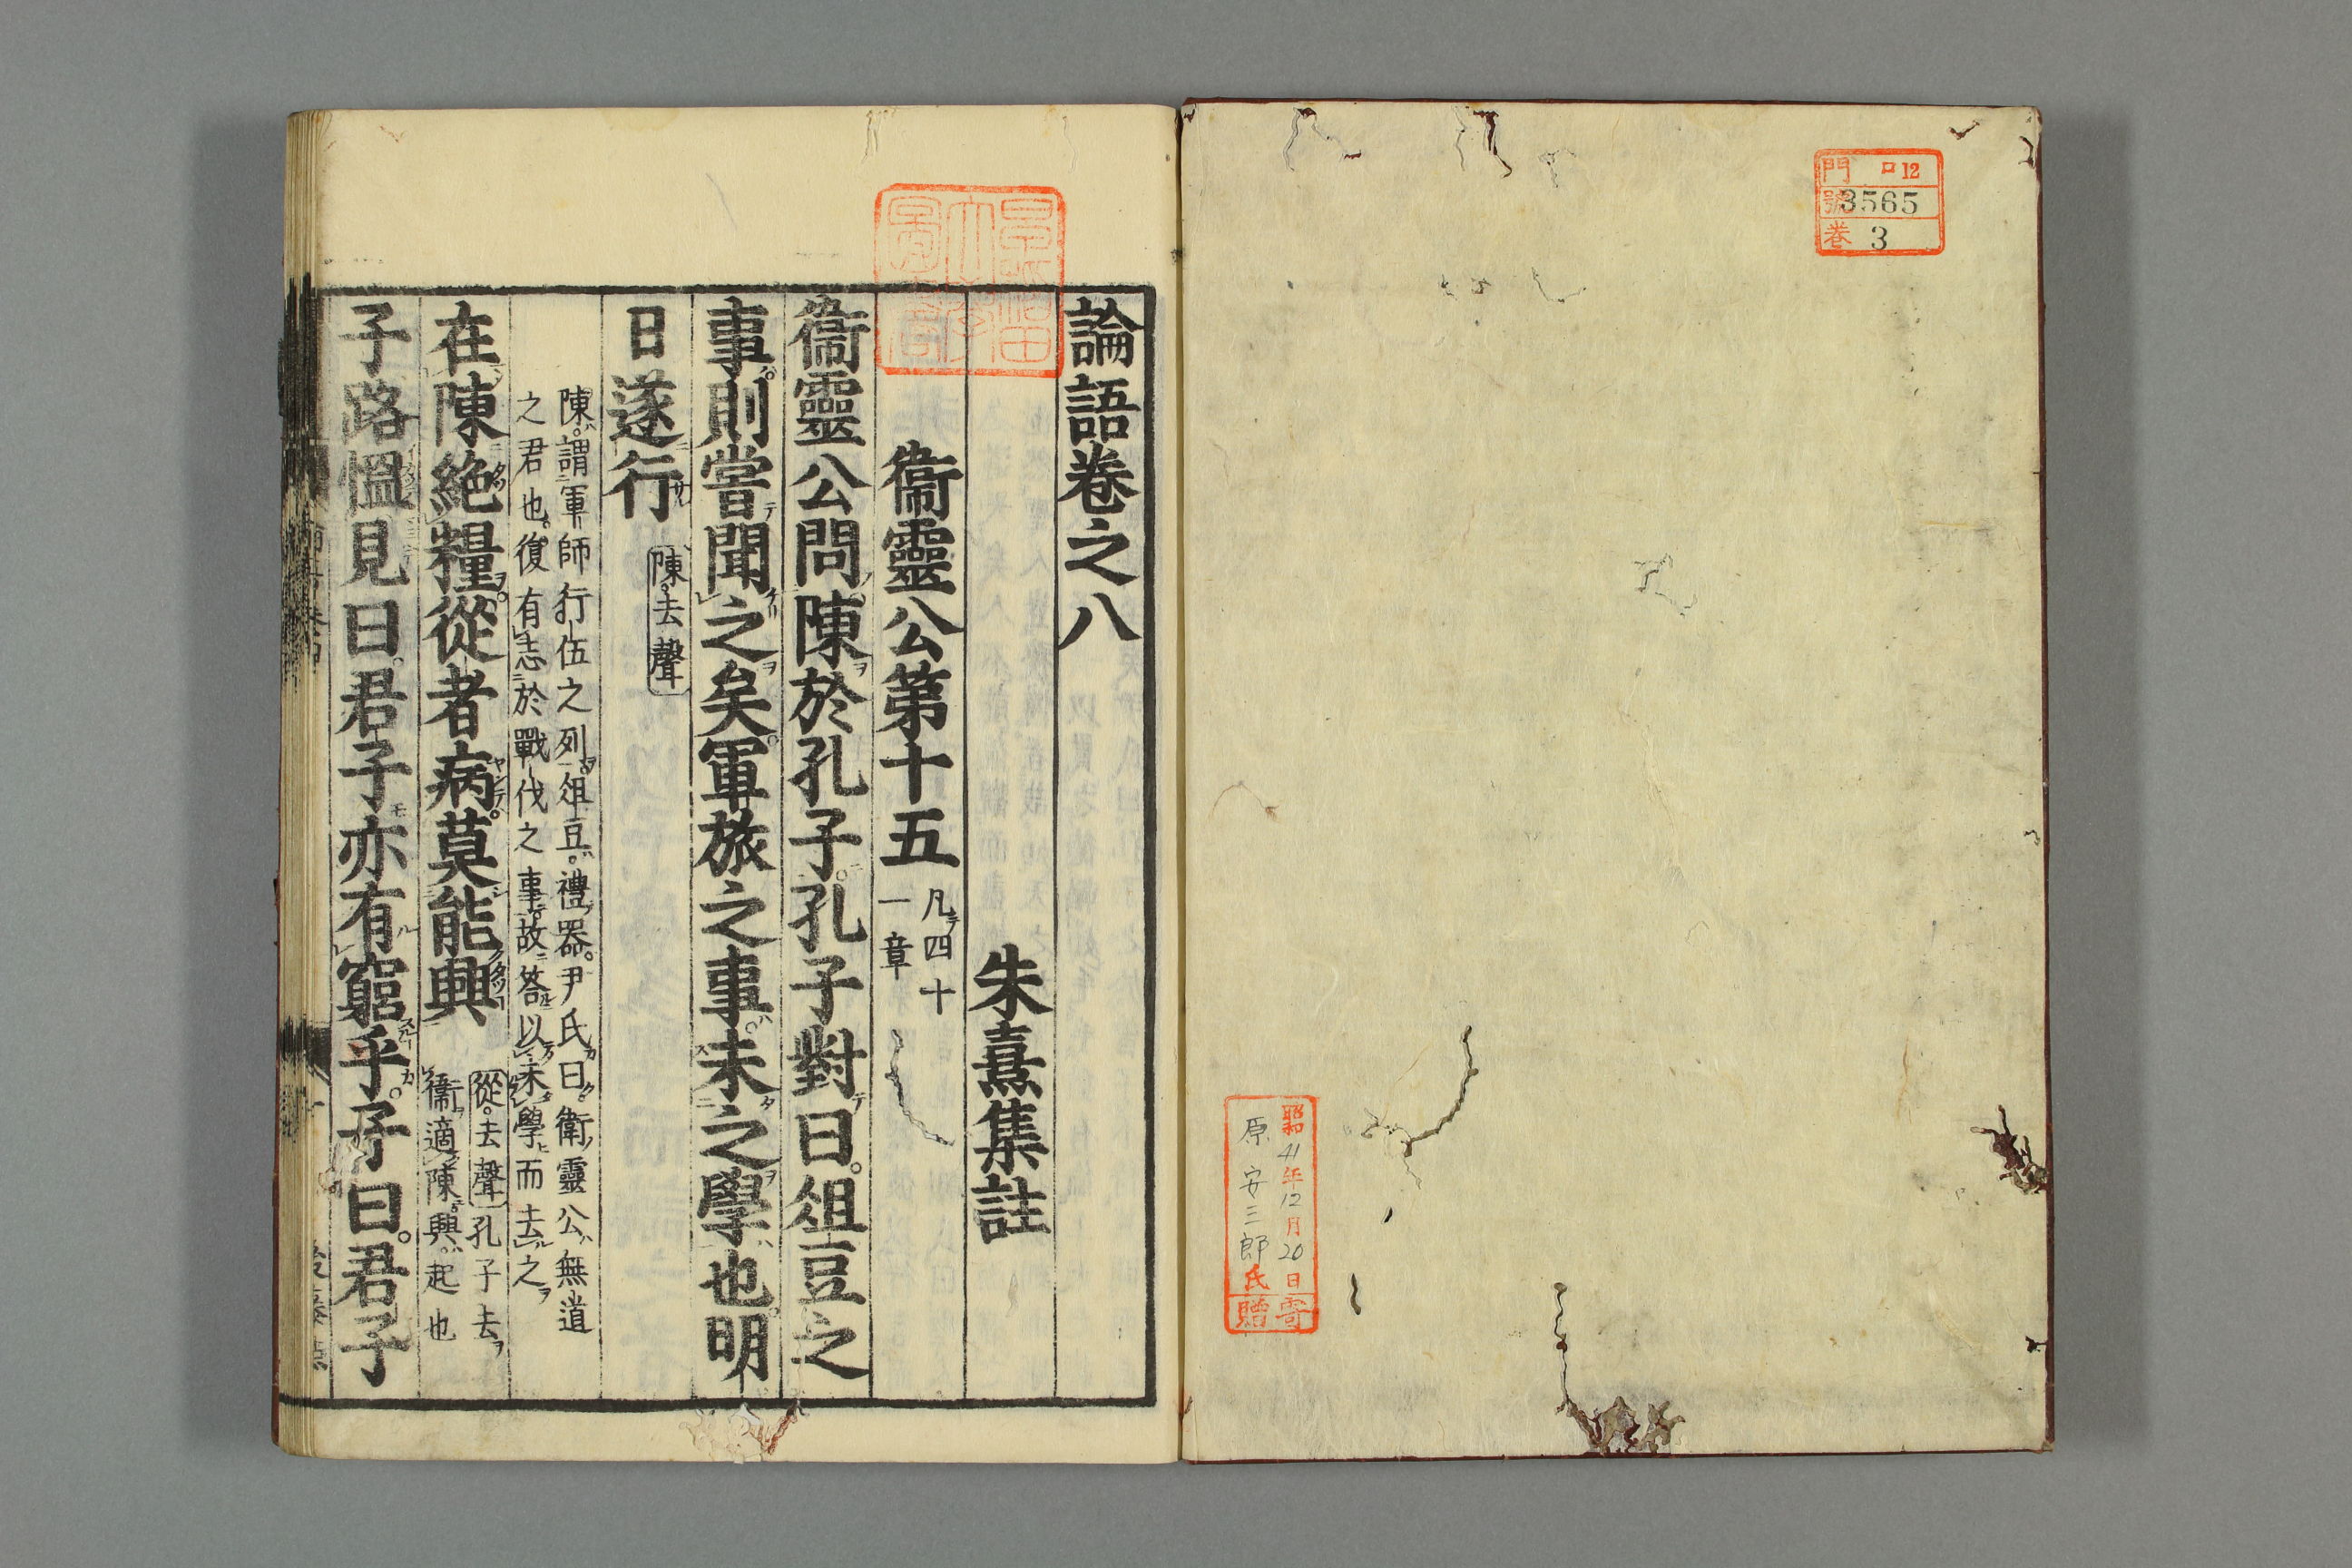 門 ロ12
號 3565
卷 3
昭41年12月20日寄
原安三郎氏贈
論語卷之八
朱熹集註
衞靈公第十五
凡四十
一章
衞靈公問陳於孔子孔子對曰俎豆之
事則嘗聞之矣軍旅之事未之學也明
日遂行
陳去聲
陳謂軍師行伍之列俎豆禮器尹氏曰衞靈公無道
之君也復有志於戰伐之事故答以未學而去之
在陳絕糧從者病莫能興
從去聲孔子去
衞適陳興起也
子路慍見曰君子亦有窮乎子曰君子